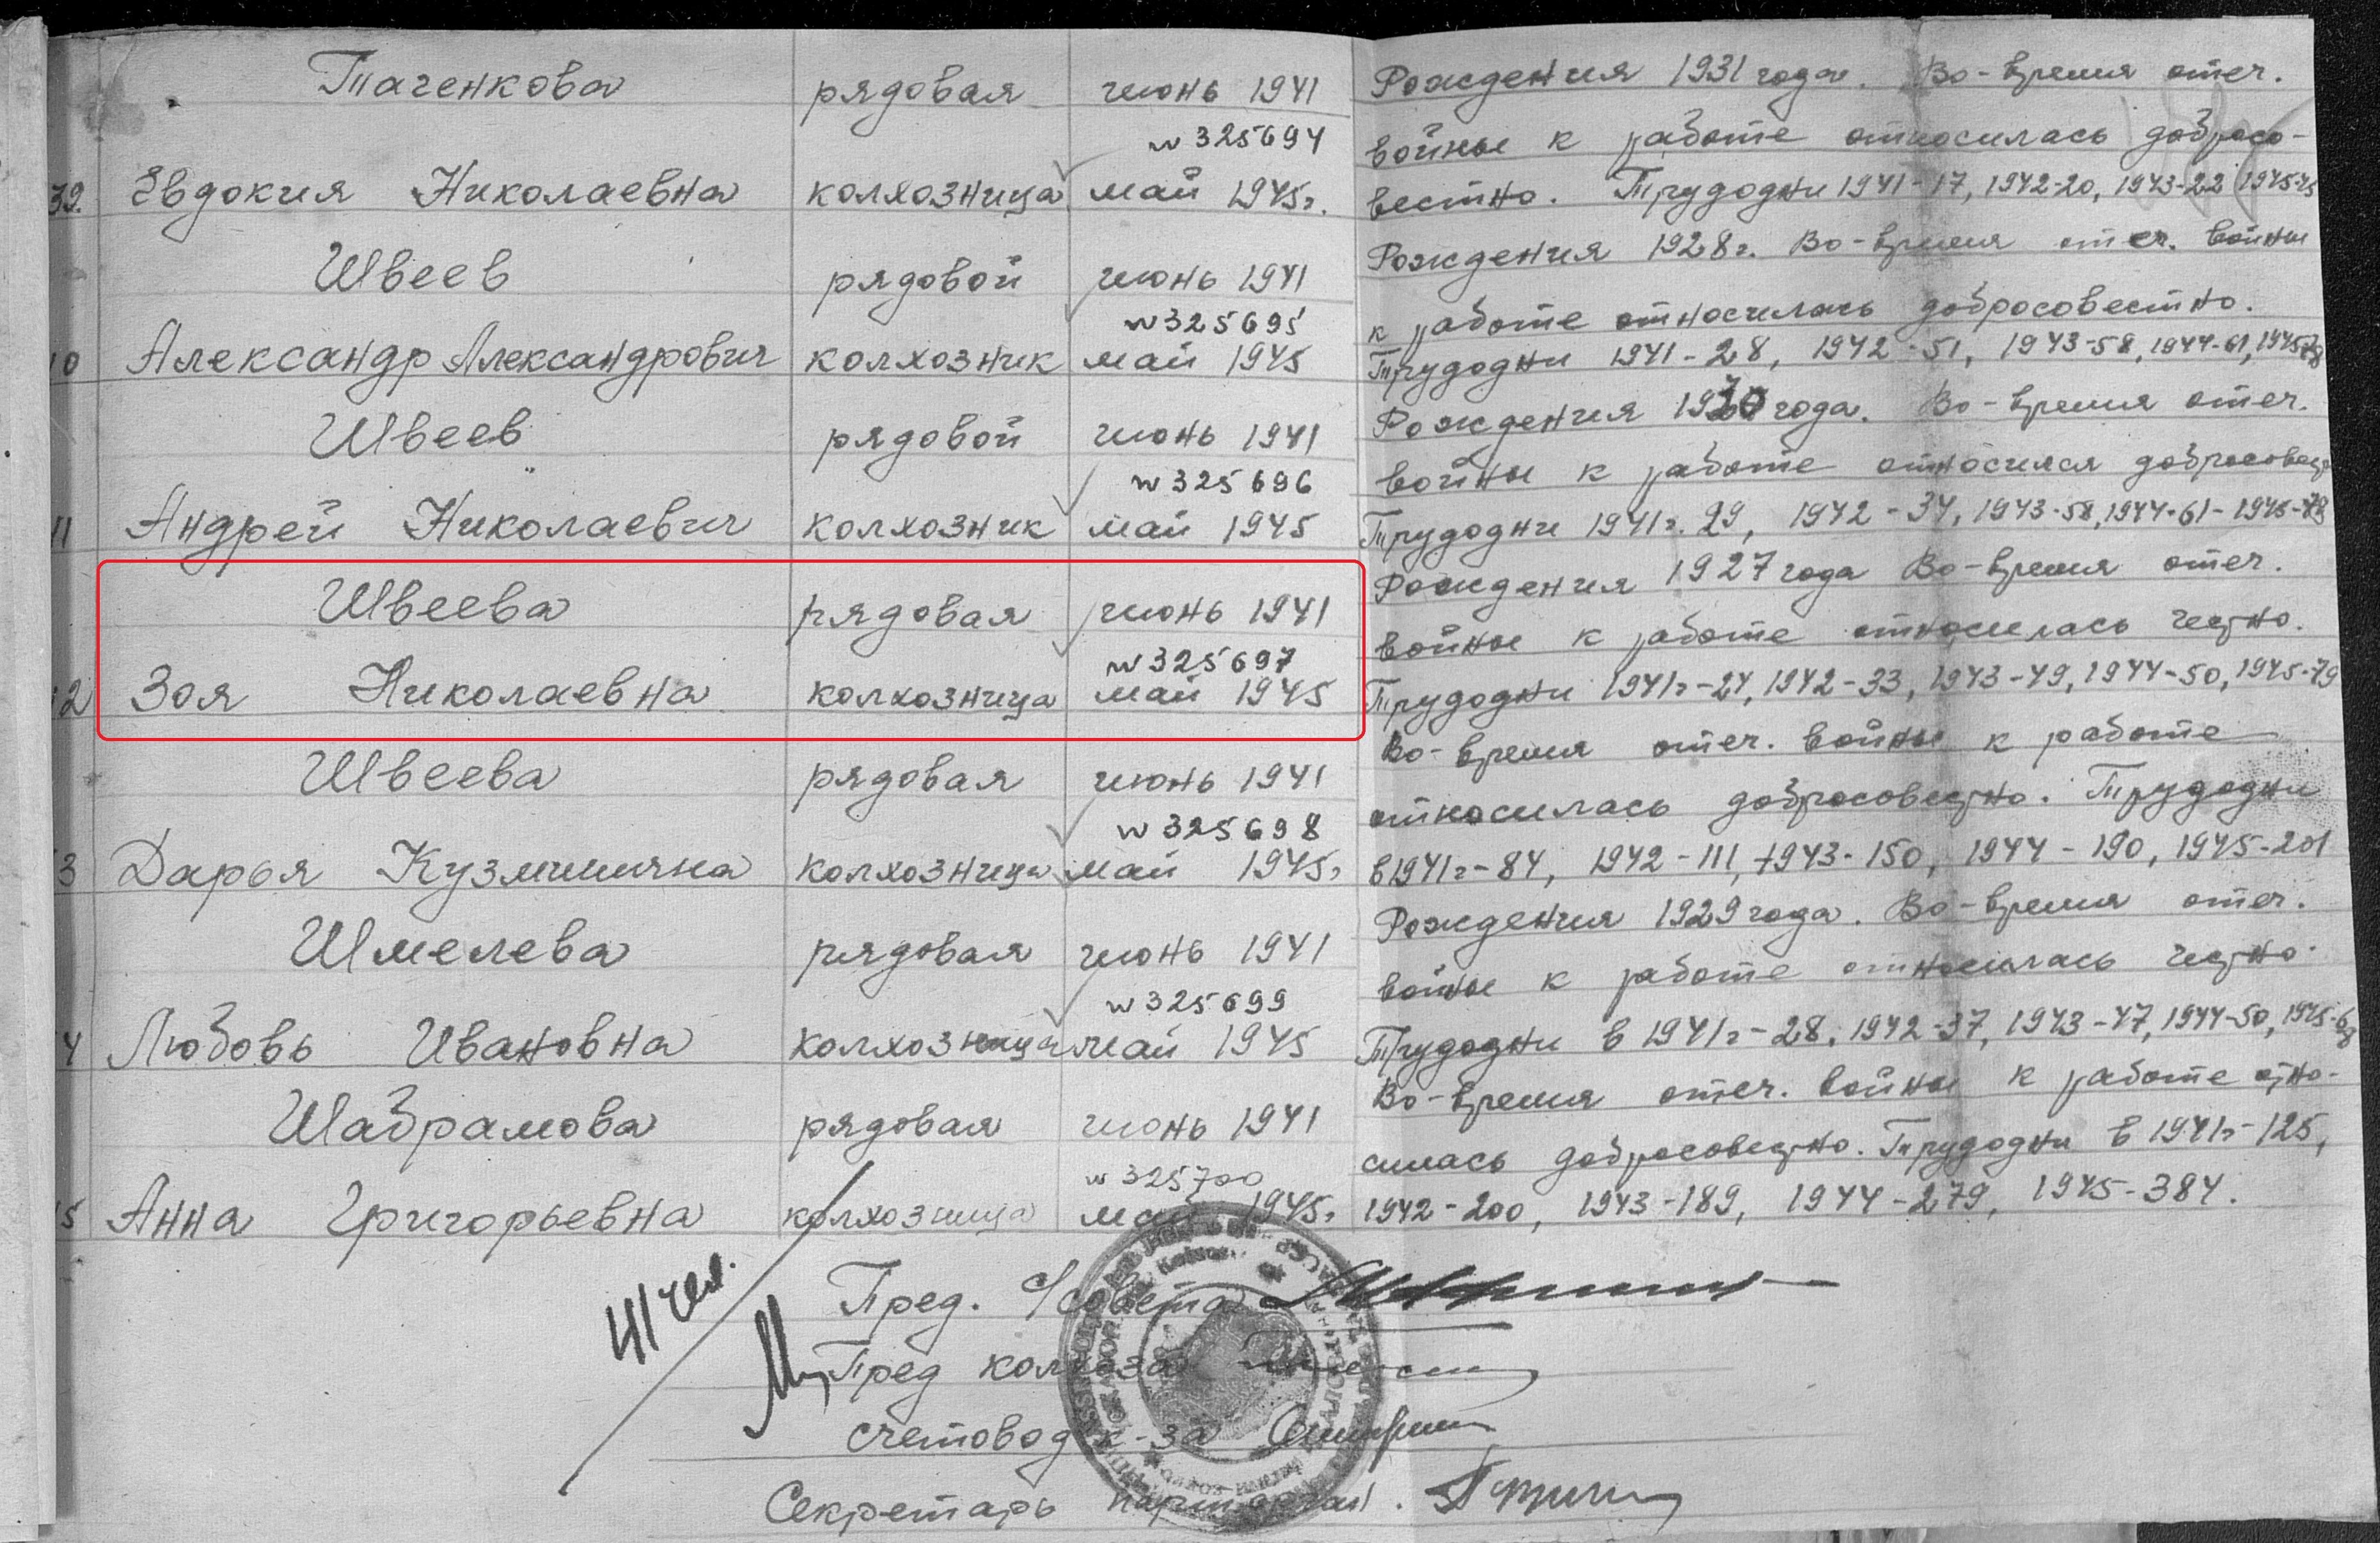 Таченкова рядовая июнь 1941 Рождения 1931 года. Во-время отеч.
N 325694 войны к работе относилась добросо-
39. Евдокия Николаевна колхозница май 1945г. вестно. Трудодни 1941-17, 1942-20, 1943-22 1945-45
Швеев рядовой июнь 1941 Рождения 1928г. Во-время отеч. войны
N 325695 к работе относилась добросовестно.
0 Александр Александрович колхозник май 1945 Трудодни 1941-28, 1942-51, 1943-58, 1944-61, 1945-78
Швеев рядовой июнь 1941 Рождения года. Во-время отеч.
N 325696 войны к работе относился добросовест
11 Андрей Николаевич колхозник май 1945 Трудодни 1941г. 29, 1942-34, 1943-58, 1944-61-1945-78
Швеева рядовая июнь 1941 Рождения 1927 года Во-время отеч.
N 325697 войны к работе относилась честно.
12 Зоя Николаевна колхозница май 1945 Трудодни 1941г-24, 1942-33, 1943-49, 1944-50, 1945-79
Швеева рядовая июнь 1941 Во-время отеч. войны к работе
N 325698 относилась добросовестно. Трудодни
3 Дарья Кузминична колхозница май 1945г. в 1941г-84, 1942-111, 1943-150, 1944-190, 1945-201
Шмелева рядовая июнь 1941 Рождения 1929 года. Во-время отеч.
N 325699 войны к работе относилась честно.
4 Любовь Ивановна колхозница май 1945 Трудодни в 1941г-28, 1942-37, 1943-47, 1944-50, 1945-68
Шабрамова рядовая июнь 1941 Во-время отеч. войны к работе отно-
N 325700 силась добросовестно. Трудодни в 1941г-125,
5 Анна Григорьевна колхозница май 1945г. 1942-200, 1943-189, 1944-279, 1945-384.
41 чел.
Пред. с/совета
Пред колхоза
Счетовод к-за
Секретарь парторган.